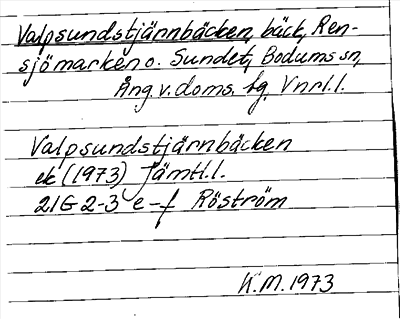 Valpsundstjärnbäcken, bäck, Ren-
sjömarken o. Sundet, Bodums sn,
Ång v. doms. hg, Vnrl. l.
Valpsundstjärnbäcken
ek (1973) Jämtl. l.
21G 2-3 e-f Röström
K.M. 1973